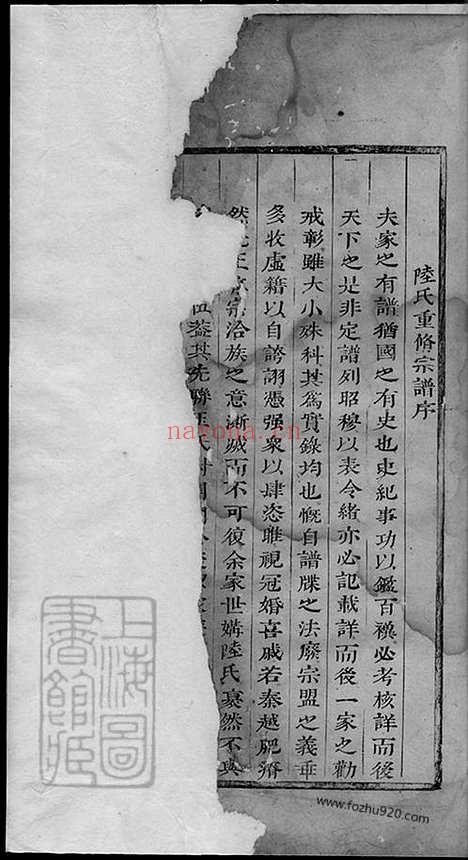 陸氏重脩宗譜序
夫家之有譜猶國之有史也史紀事功以鑑百禩必考核詳而後
天下之是非定譜列昭穆以表令緒亦必記載詳而後一家之勸
戒彰雖大小殊科其為實錄均也慨自譜牒之法廢宗盟之義乖
多收虛籍以自誇詡憑强衆以肆恣睢視冠婚喜戚若秦越肥瘠
然 王 宗洽族之意漸滅而不可復余家世媾陸氏褎然不與
葢其先聯
上海圖書館藏
nayona.cn
www.fozhu920.com